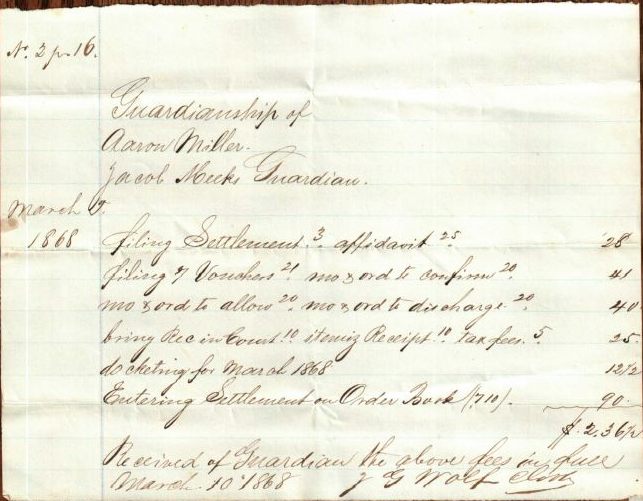 No. 2 p. 16.
Guardianship of
Aaron Miller.
Jacob Meeks Guardian.
March T.
1868 filing Settlement. 3 affidavit 25 28
filing 7 Vouchers 21 mo & ord to confirm 20. 41
mo & ord to allow 20 mo & ord to discharge. 20 40
bring Rec in Court. 10 Receipt. 10 tax fees. 5. 25.
docketing for March 1868 12 1/2
Entering Settlement on Order Book (710). 90.
$. 2.36 1/2
Received of Guardian the above fees in full
March 10" 1868 J G Wolf Clerk